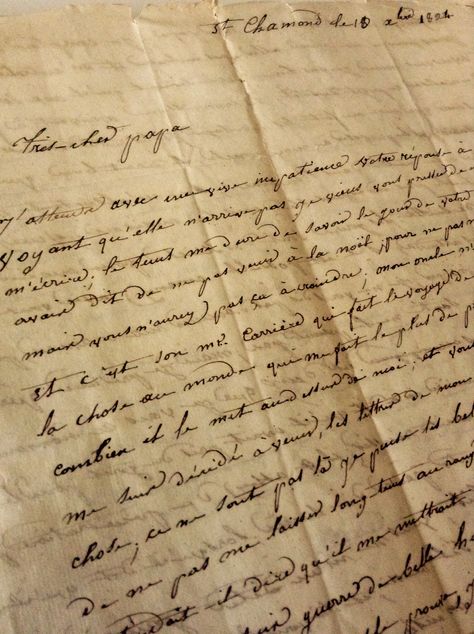 St Chamond le 18 xbre 1824
Très-cher papa
J'attends avec une vive impatience votre réponse à
voyant qu'elle n'arrive pas je viens vous presser de
m'écrire; le tems me dure de savoir le jour de votre
avais dit de ne pas venir à la noël, pour ne pas
mais vous n'aurez pas ça à craindre, mon oncle
et c'est son mr. Carrière qui fait le voyage de
la chose au monde qui me fait le plus de
combien il le met au dessus de moi; et
me suis décidé à venir, les lettres de mon
chose; ce ne sont pas là les
de ne pas me laisser long-tems au rang
dire qu'il me mettrait
guerre de belle